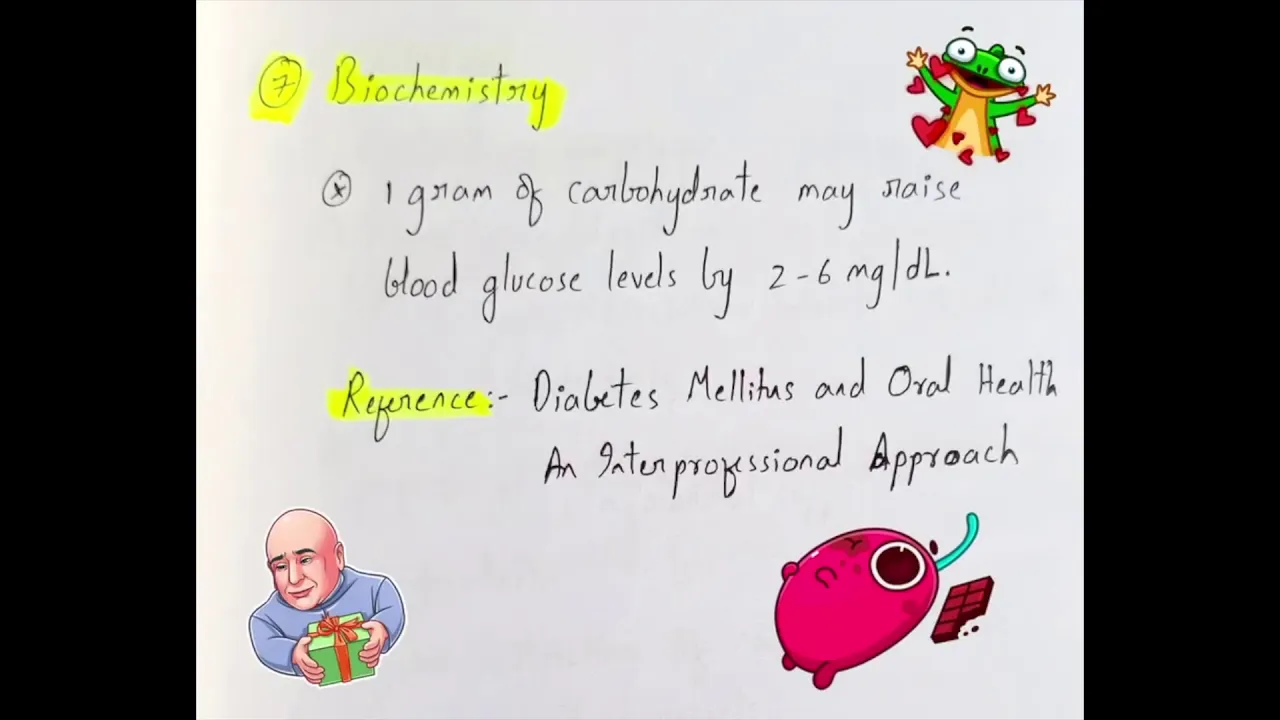 7 Biochemistry
1 gram of carbohydrate may raise
blood glucose levels by 2-6 mg/dL.
Reference:- Diabetes Mellitus and Oral Health
An Interprofessional Approach